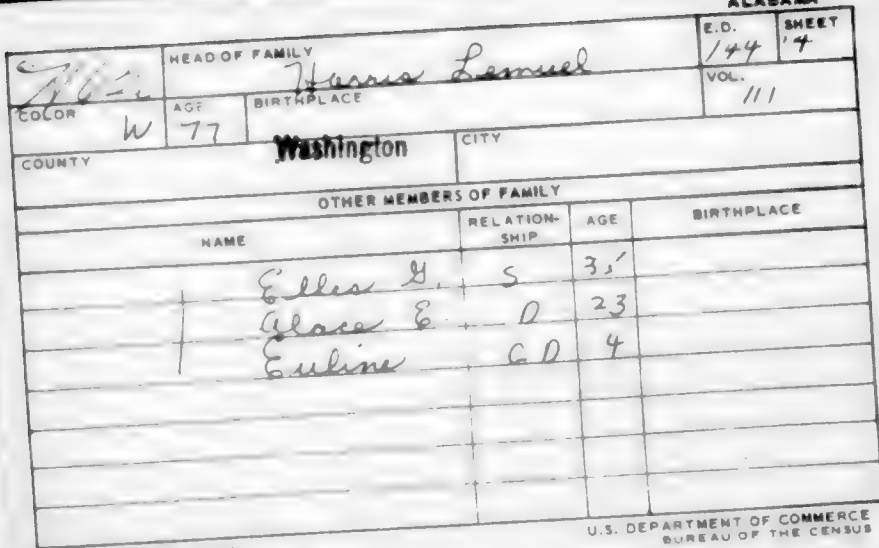 ALABAMA
HEAD OF FAMILY
Harris Lemuel
E.D.
144
SHEET
4
COLOR
W
AGE
77
BIRTHPLACE
VOL.
111
COUNTY
Washington
CITY
OTHER MEMBERS OF FAMILY
NAME RELATION-SHIP AGE BIRTHPLACE
Ellis G. S 35
E D 23
Euline GD 4
U.S. DEPARTMENT OF COMMERCE
BUREAU OF THE CENSUS